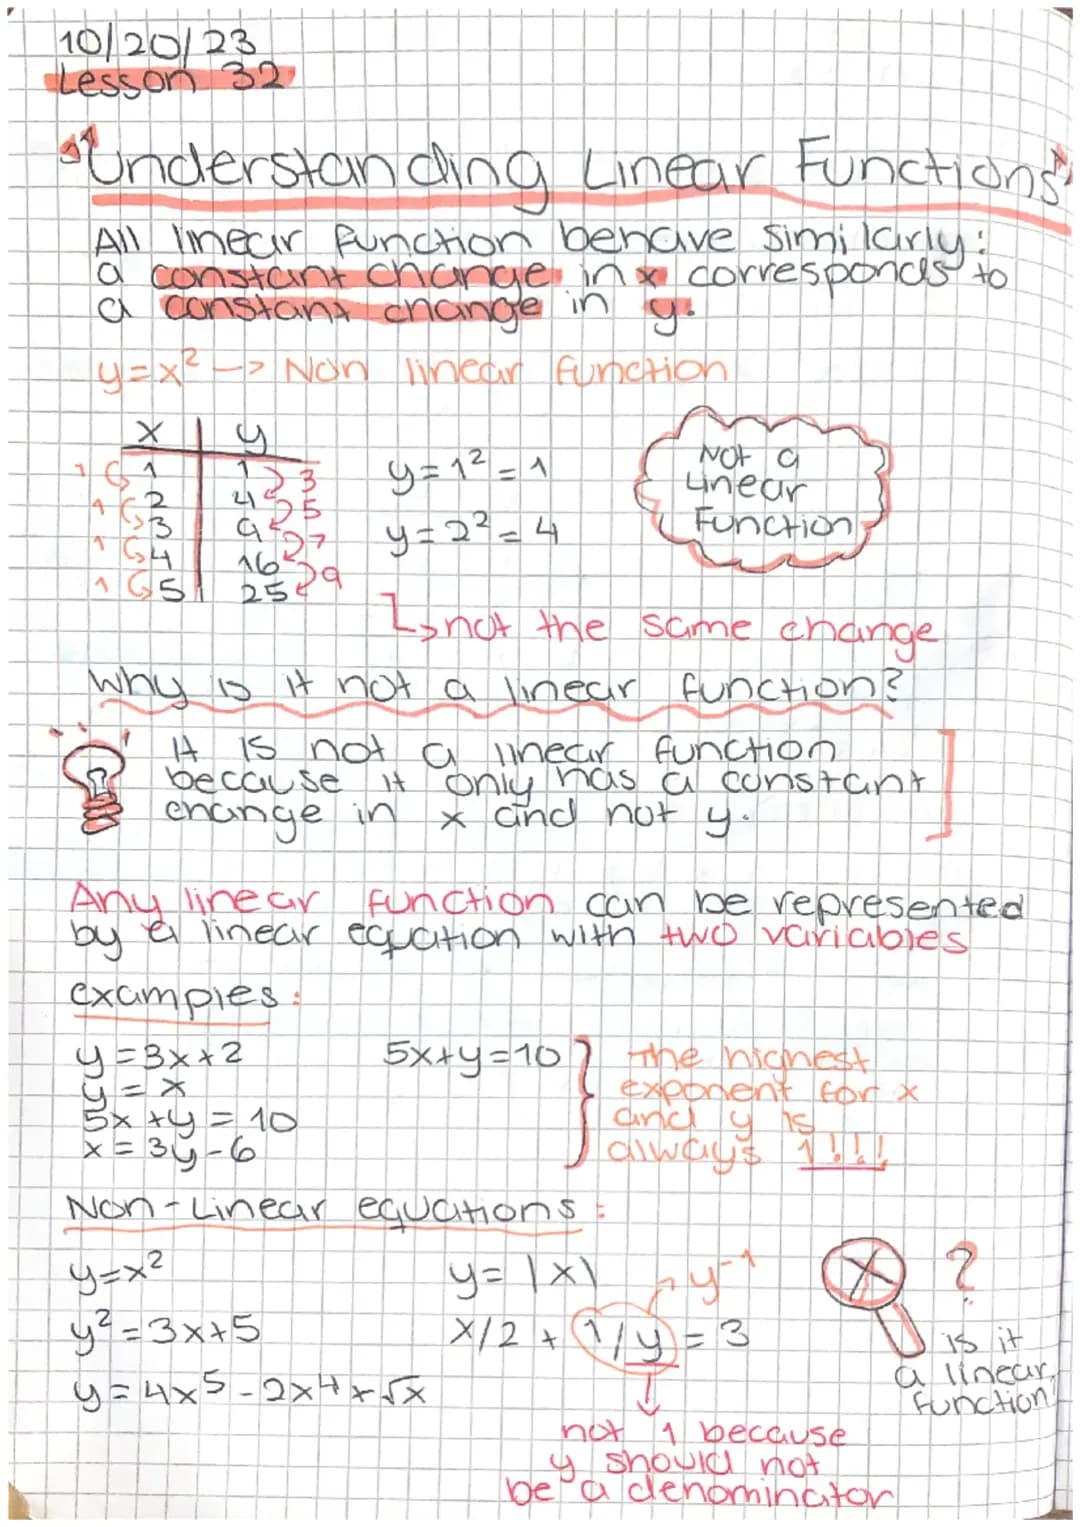 10/20/23
Lesson 32
Understanding Linear Functions
All linear function behave similarly:
a constant change in x corresponds to
a constant change in y.
y=x² -> Non linear function
x | y
1 1 1 3
1 2 4 5
1 3 9 7
1 4 16 9
5 25
y=1²=1
y=2²=4
Not a
Linear
Function
↳not the same change
Why is it not a linear function?
It is not a linear function
because it only has a constant
change in x and not y.
Any linear function can be represented
by a linear equation with two variables
examples:
y=3x+2
y=x
5x+y=10
x=3y-6
5x+y=10
The highest
exponent for x
and y is
always 1!!!!
Non-Linear equations:
y=x²
y²=3x+5
y=4x⁵-2x⁴+√x
y=|x|
x/2 + 1/y = 3
y⁻¹
not 1 because
y should not
be a denominator
x ?
is it
a linear
function!